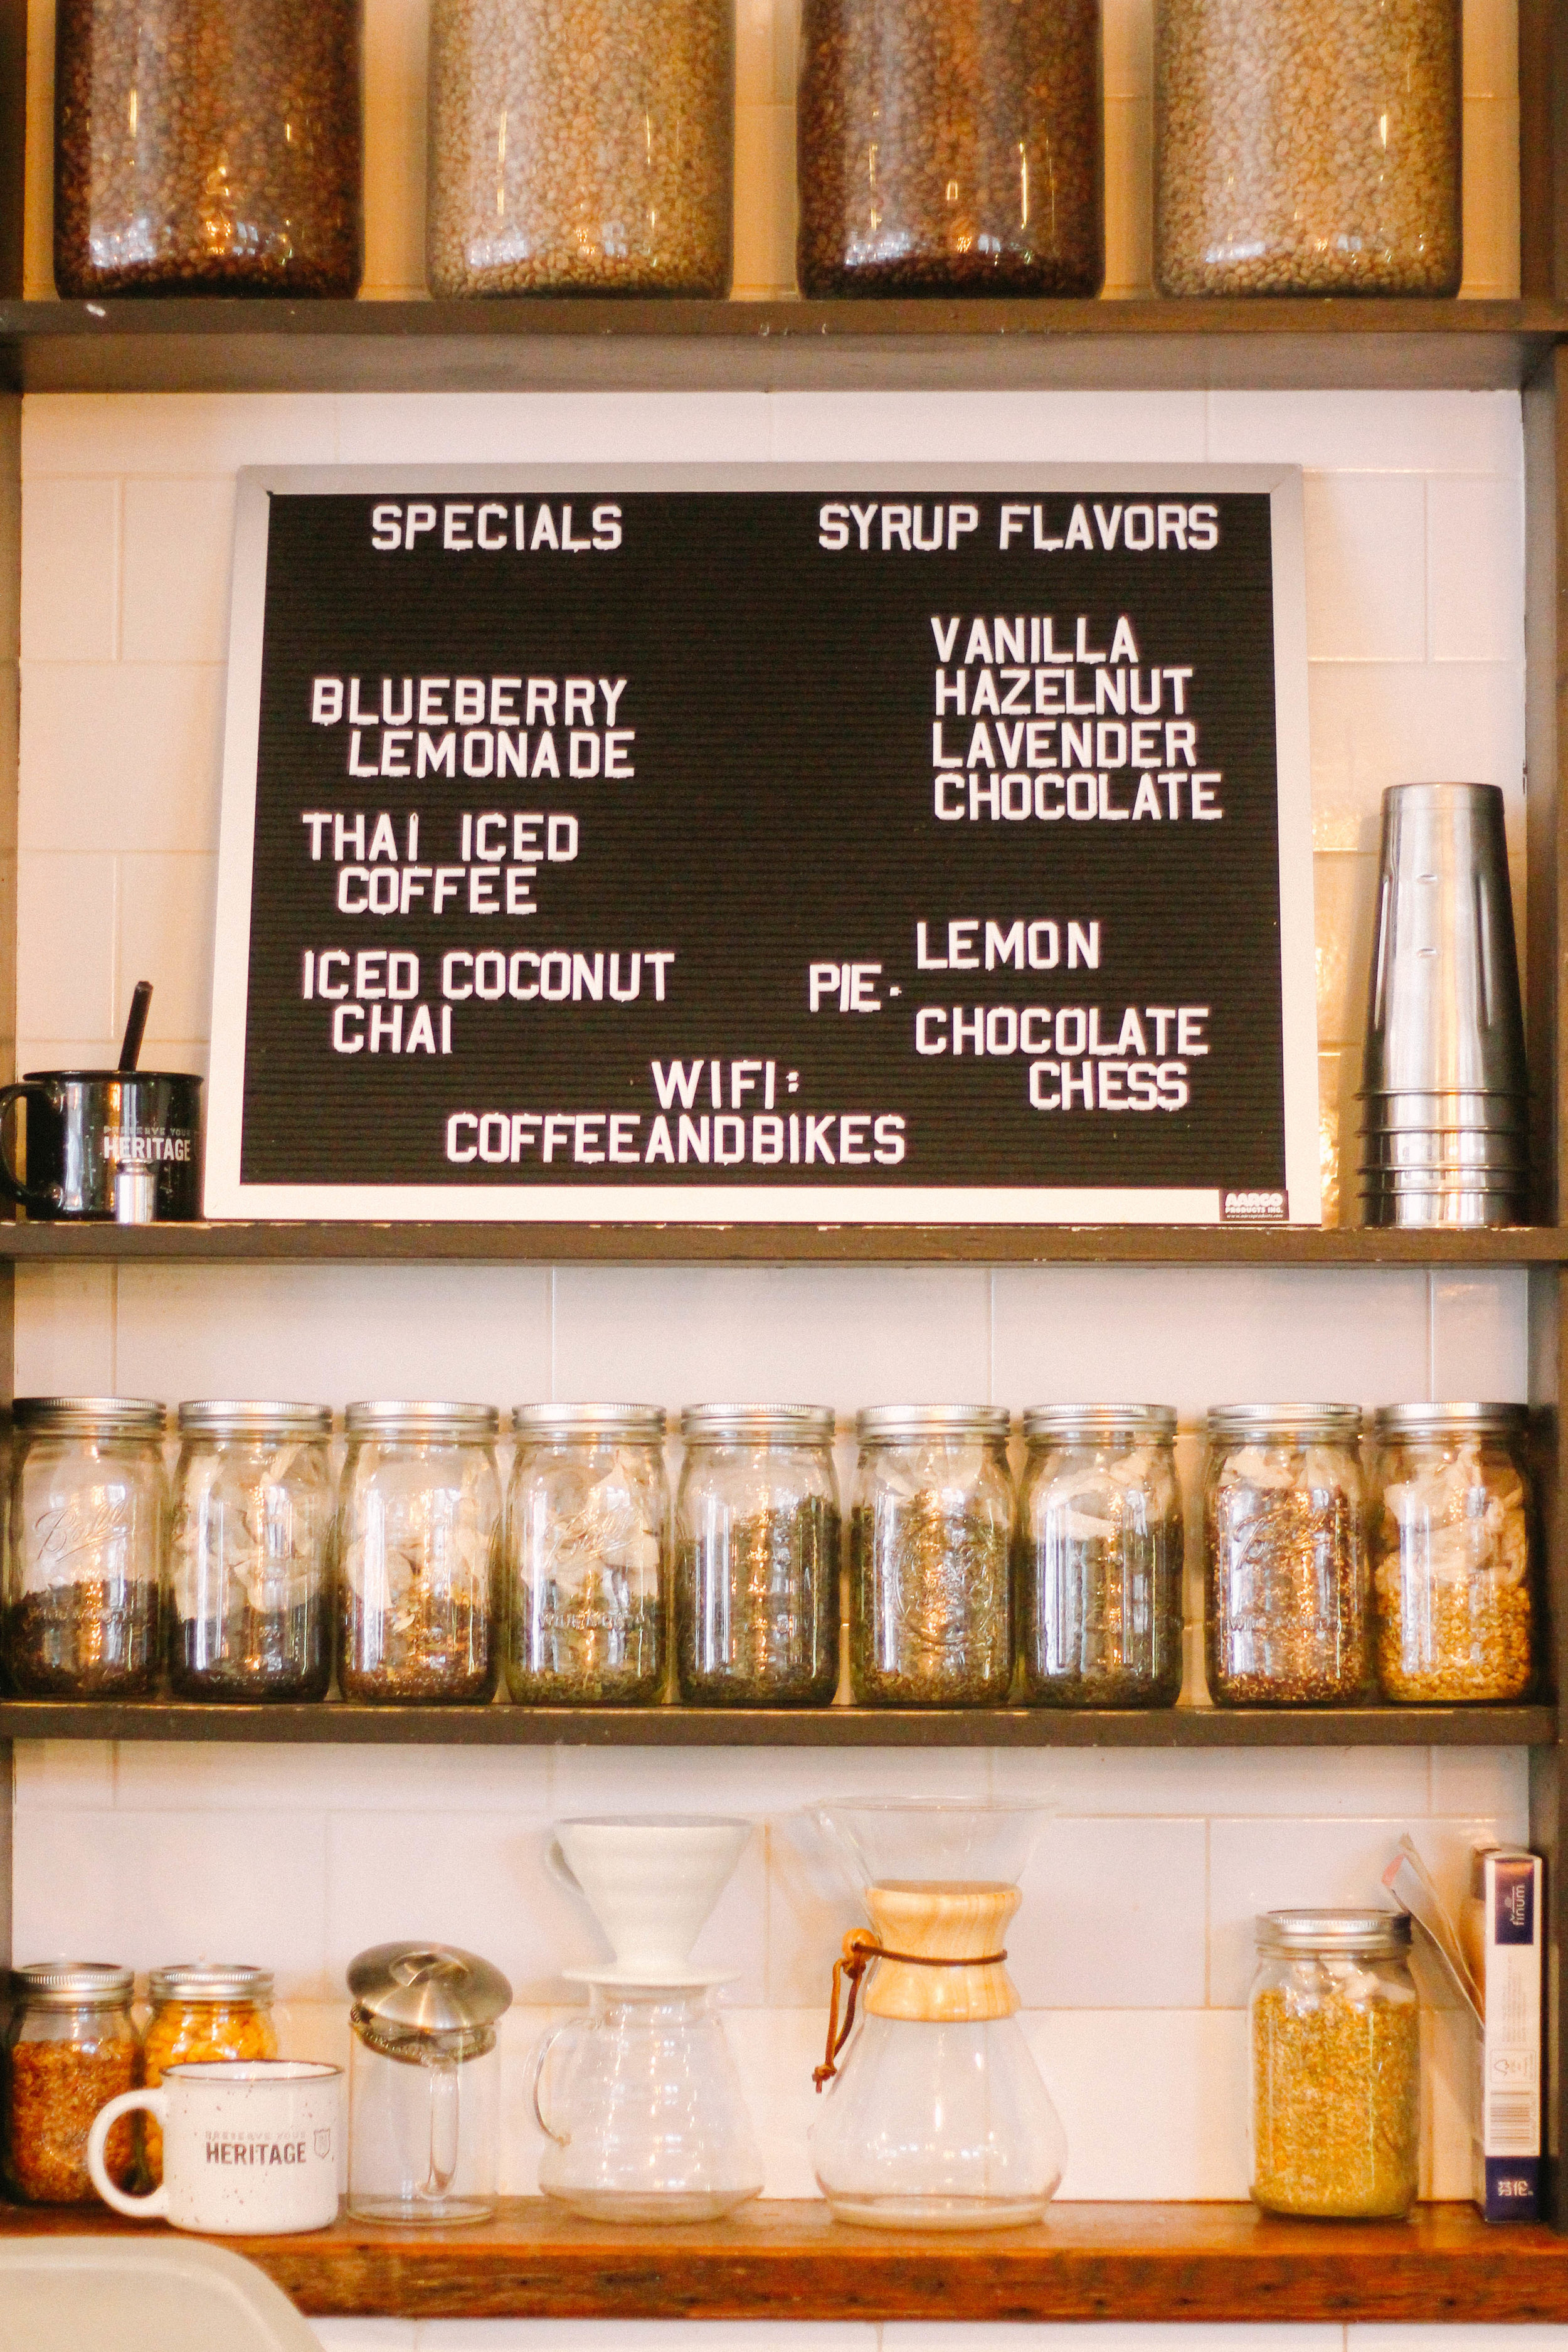 SPECIALS
BLUEBERRY
LEMONADE
THAI ICED
COFFEE
ICED COCONUT
CHAI
SYRUP FLAVORS
VANILLA
HAZELNUT
LAVENDER
CHOCOLATE
PIE-
LEMON
CHOCOLATE
CHESS
WIFI:
COFFEEANDBIKES
AARCO
PRODUCTS INC.
PRESERVE YOUR
HERITAGE
Ball
PRESERVE YOUR
HERITAGE
finum